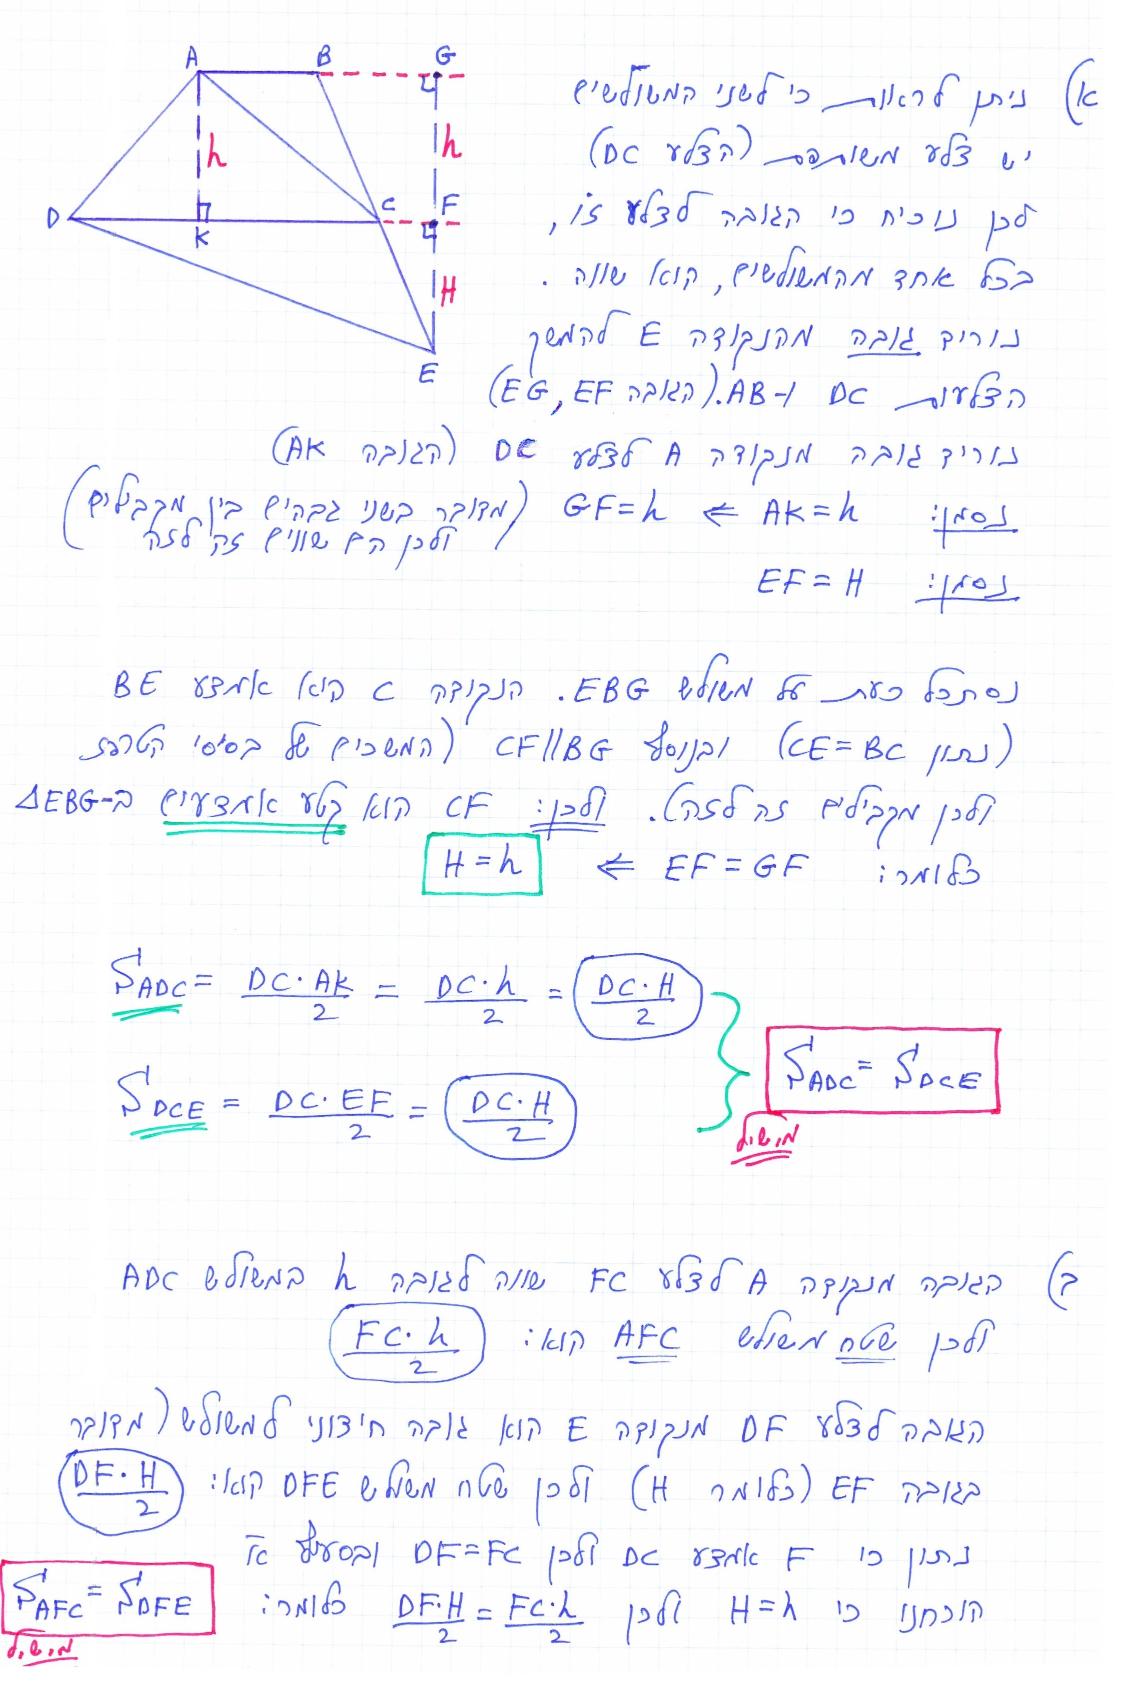 A B G
h h
D K C F
H
E
א) ניתן לראות כי לשני המשולשים
יש צלע משותפת (הצלע DC)
לכן נוכיח כי הגובה לצלע זו,
בכל אחד מהמשולשים, הוא שווה.
נוריד גובה מהנקודה E להמשך
הצלעות DC ו-AB. (הגובה EG, EF)
נוריד גובה מנקודה A לצלע DC (הגובה AK)
נסמן: AK=h ⇐ GF=h (מדובר בשני גבהים בין מקבילים
ולכן הם שווים זה לזה)
נסמן: EF=H
נסתכל כעת על משולש EBG. הנקודה C היא אמצע BE
(נתון CE=BC) ובנוסף CF||BG (המשכים של בסיסי הטרפז
ולכן מקבילים זה לזה). ולכן: CF הוא קטע אמצעים ב-ΔEBG
כלומר: EF=GF ⇐ H=h
S_ADC = DC·AK/2 = DC·h/2 = DC·H/2
S_DCE = DC·EF/2 = DC·H/2
S_ADC = S_DCE
מ.ש.ל
ב) הגובה מנקודה A לצלע FC שווה לגובה h במשולש ADC
ולכן שטח משולש AFC הוא: FC·h/2
הגובה לצלע DF מנקודה E הוא גובה חיצוני למשולש (מדובר
בגובה EF (כלומר H) ולכן שטח משולש DFE הוא: DF·H/2
נתון כי F אמצע DC ולכן DF=FC ובסעיף א'
הוכחנו כי H=h ולכן DF·H/2 = FC·h/2 כלומר: S_AFC = S_DFE
מ.ש.ל